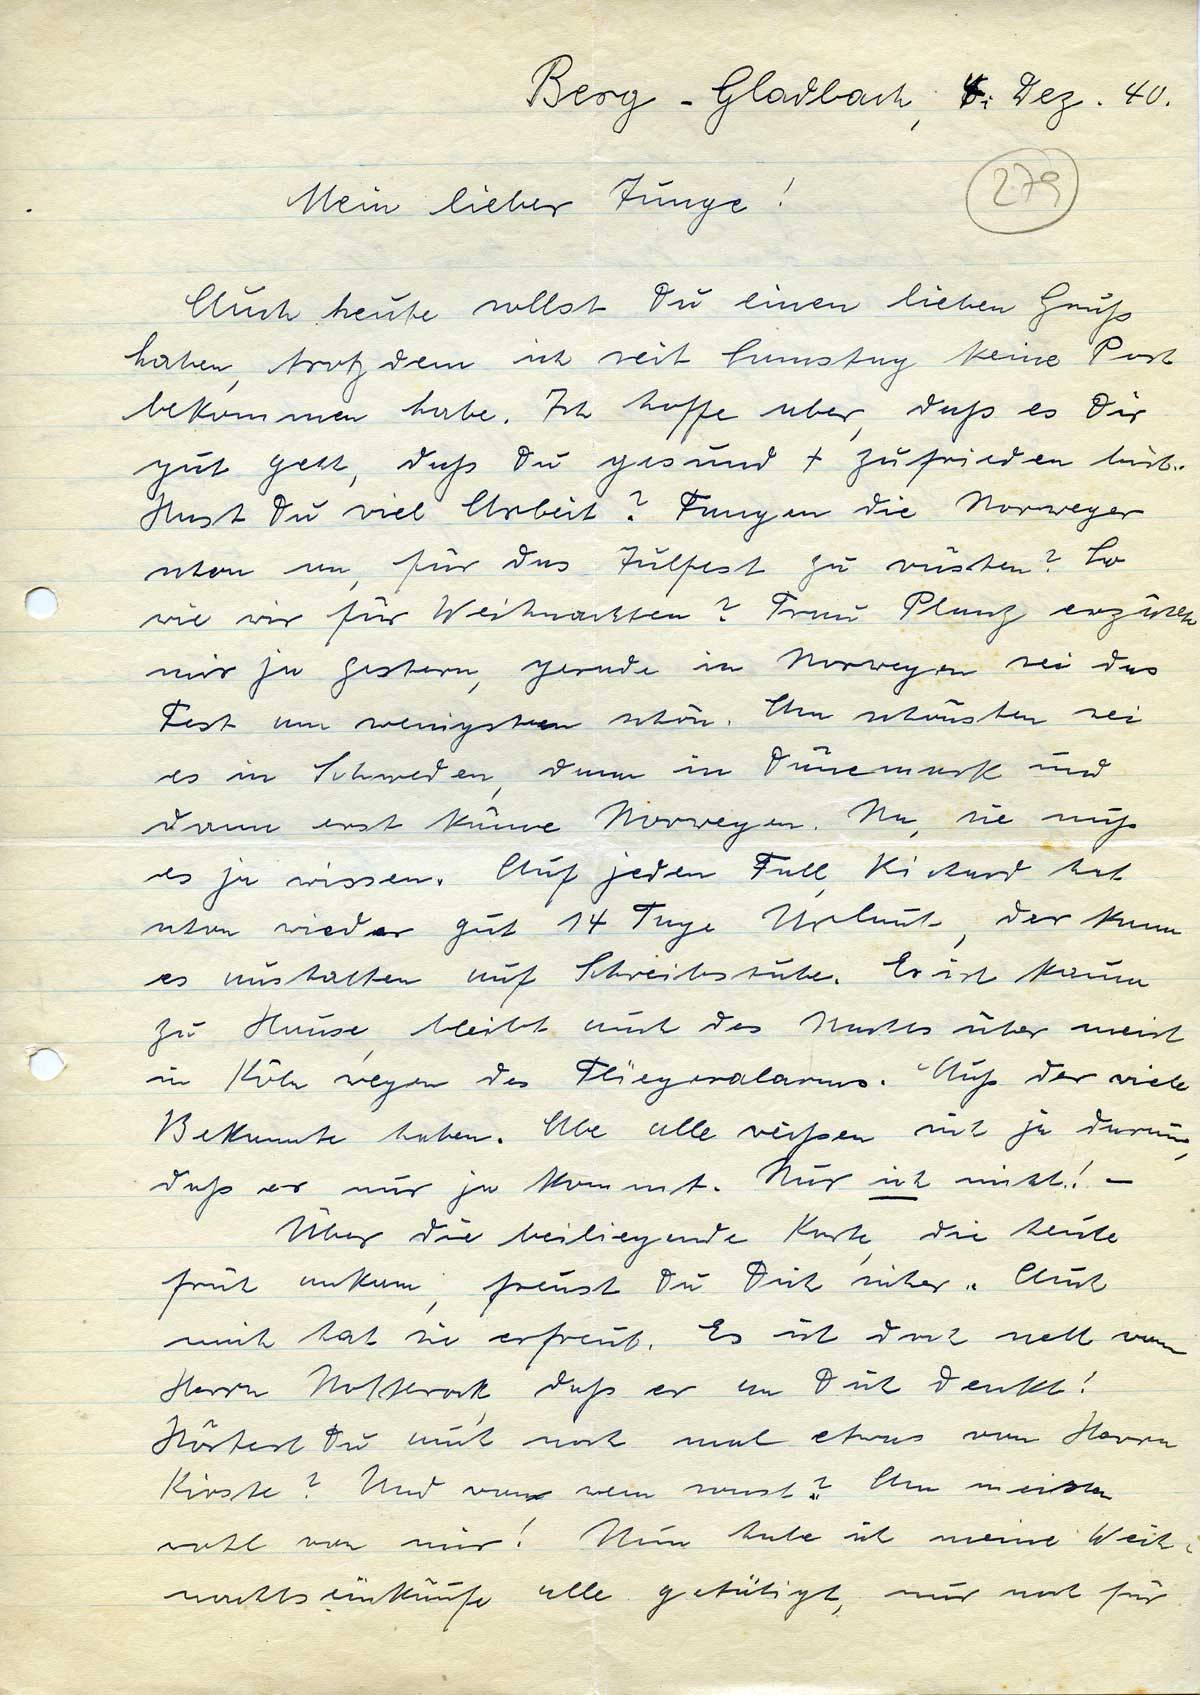 Berg.-Gladbach, 4. Dez. 40.
279
Mein lieber Junge!
Auch heute sollst Du einen lieben Gruß
haben, trotzdem ich seit Samstag keine Post
bekommen habe. Ich hoffe aber, daß es Dir
gut geht, daß Du gesund + zufrieden bist.
Hast Du viel Arbeit? Fangen die Norweger
schon an, für das Julfest zu rüsten? So
wie wir für Weihnachten? Frau Planz erzählte
mir ja gestern, gerade in Norwegen sei das
Fest am wenigsten schön. Am schönsten sei
es in Schweden, dann in Dänemark und
dann erst käme Norwegen. Na, sie muß
es ja wissen. Auf jeden Fall, Richard hat
schon wieder gut 14 Tage Urlaub, der kann
es aushalten auf Schreibstube. Er ist kaum
zu Hause, bleibt auch des Nachts über meist
in Köln wegen des Fliegeralarms. Muß der viele
Bekannte haben. Aber alle reißen sich ja darum,
daß er nur ja kommt. Nur ich nicht! -
Über die beiliegende Karte, die heute
früh ankam, freust Du Dich sicher. Auch
mich hat sie erfreut. Es ist doch nett von
Herrn daß er an Dich denkt!
Hörtest Du auch noch mal etwas von Herrn
Kirste? Und von wem sonst? Am meisten
wohl von mir! Nun habe ich meine Weih-
nachtseinkäufe alle getätigt, nur noch für